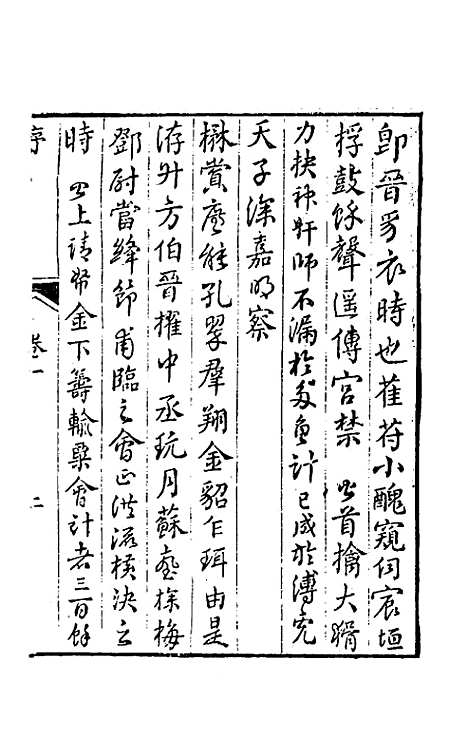 郎晉爵衣時也萑苻小醜窺伺宸垣
桴鼓錞聲遥傳宮禁 皆首擒大猾
力抉神奸師不漏於多魚計已成於縛兕
天子深嘉明察
楙賞麈能孔翠羣翔金貂乍珥由是
洊升方伯晉擢中丞玩月蘇臺探梅
鄧尉當絳節甫臨之會正洪流橫決之
時 四上請帑金下籌輸粟會計者三百餘
序 卷一 二